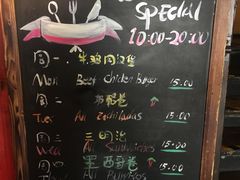 Special
10:00-20:00
周一：牛鸡肉汉堡
Mon Beef chicken Burger 15.00
周二：
Tues All Enchiladas 15.00
周三：三明治
Wed All Sandwiches 15.00
周四：墨西哥卷
All Burritos 15.00